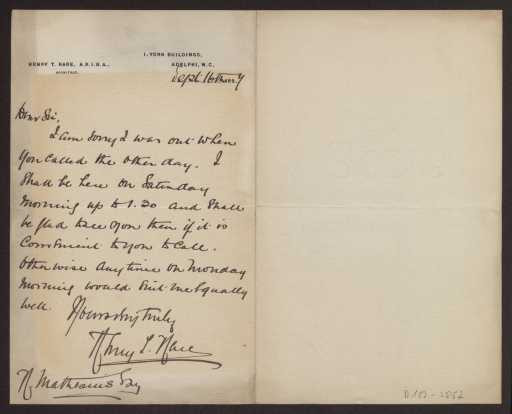 1, YORK BUILDINGS,
HENRY T. HARE, A.R.I.B.A., ADELPHI, W.C.
ARCHITECT.
Sept 16th 7
Dear Sir,
I am sorry I was out when
you called the other day. I
shall be here on Saturday
morning up to 1.30 and shall
be glad to see you then if it is
convenient to you to call.
Otherwise any time on Monday
morning would suit me equally
well. Yours very truly
Henry T. Hare
Matheams Esq